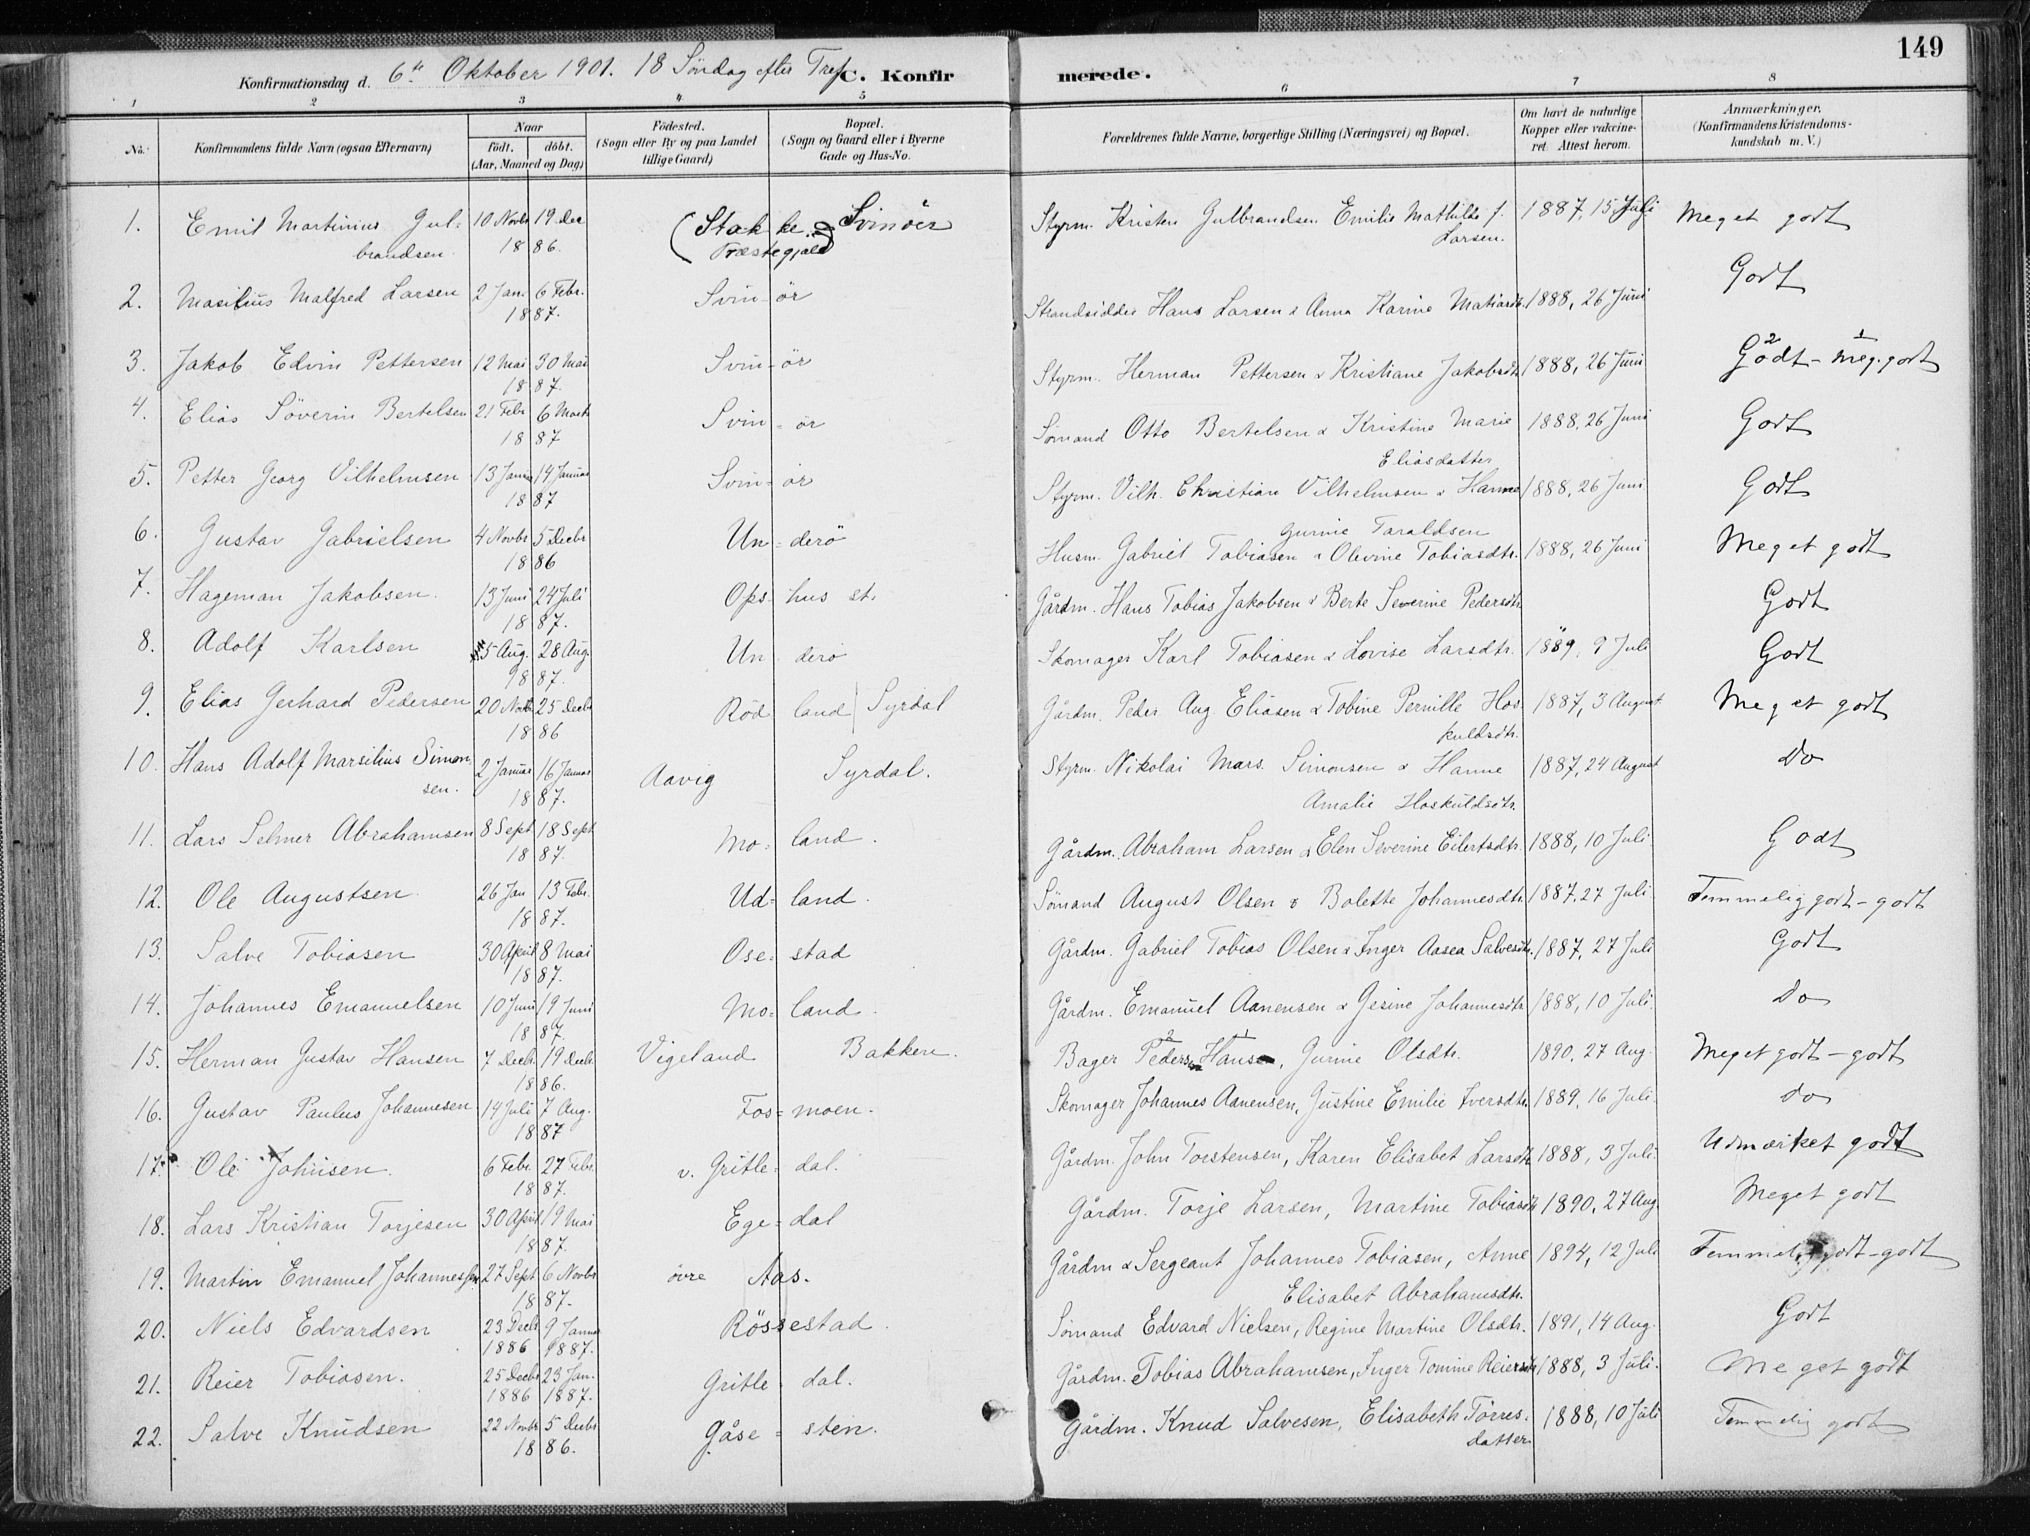 149
Konfirmationsdag d. 6te Oktober 1901. 18 Söndag efter Tref. C. Konfirmerede.
1 2 3 4 5 6 7 8
No. Konfirmandens fulde Navn (ogsaa Efternavn) Naar födt. döbt. (Aar, Maaned og Dag) Födested. (Sogn eller By og paa Landet tillige Gaard) Bopæl. (Sogn og Gaard eller i Byerne Gade og Hus-No. Forældrenes fulde Navne, borgerlige Stilling (Næringsvei) og Bopæl. Om havt de naturlige Kopper eller vakcineret. Attest herom. Anmærkninger. (Konfirmandens Kristendomskundskab m. V.)
1. Emil Martinius Gulbrandsen. 10 Novbr 19 Dec 1886. (Stokke Præstegjæld) Svinöer Styrm. Kristen Gulbrandsen Emilie Mathilde f. Larsen. 1887, 15 Juli Meget godt
2. Masilius Malfred Larsen 2 Jan. 6 Febr. 1887. Svinör Strandsidder Hans Larsen & Anna Karine Matiasdtr. 1888, 26 Juni Godt
3. Jakob Edvin Pettersen 12 Mai 30 Mai 1887. Svin-ör Styrm. Herman Pettersen & Kristiane Jakobsdtr. 1888, 26 Juni Godt - meg. godt
4. Elias Söverin Bertelsen 21 Febr 6 Marts 1887 Svin-ör Sömand Otto Bertelsen & Kristine Marie Eliasdatter 1888, 26 Juni Godt
5. Petter Georg Vilhelmsen 13 Janua 14 Januar 1887 Svin-ör Styrm. Vilh. Christian Vilhelmsen & Hanne Gurine Taraldsen 1888, 26 Juni Godt
6. Gustav Gabrielsen 4 Novbr 5 Decbr 1886 Un-derö Husm. Gabriel Tobiasen & Olevine Tobiasdtr. 1888, 26 Juni Meget godt
7. Hageman Jakobsen. 13 Juni 24 Juli 1887. Ops-hus st. Gårdm. Hans Tobias Jakobsen & Berte Severine Pedersdtr. Godt
8. Adolf Karlsen 5 Aug. 28 Aug. 1887. Un-derö Skomager Karl Tobiasen & Lovise Larsdtr. 1889, 9 Juli Godt
9. Elias Gerhard Pedersen 20 Novbr 25 Decbr 1886 Rödland Syrdal Gårdm. Peder Aug. Eliasen & Tobine Pernille Hoskuldsdtr. 1887, 3 August Meget godt
10. Hans Adolf Marsilius Simonsen. 2 Januar 16 Januar 1887. Aavig Syrdal. Styrm. Nikolai Mars. Simonsen & Hanne Amalie Hoskuldsdtr. 1887, 24 August Do
11. Lars Selmer Abrahamsen 8 Sept 18 Sept 1887. Mo-land. Gårdm. Abraham Larsen & Elen Severine Eilertsdtr. 1888, 10 Juli Godt
12. Ole Augustsen. 26 Jan 13 Febr. 1887. Ud-land. Sömand August Olsen & Bolette Johannesdtr. 1887, 27 Juli Temmelig godt - godt
13. Salve Tobiasen 30 April 8 Mai 1887. Ose-stad Gårdm. Gabriel Tobias Olsen & Inger Aasea Salvesdtr. 1887, 27 Juli Godt
14. Johannes Emanuelsen 10 Juni 19 Juni 1887. Mo-land. Gårdm. Emanuel Aanensen & Gesine Johannesdtr. 1888, 10 Juli. Do
15. Herman Gustav Hansen 7 Decbr. 19 Decbr. 1886. Vigeland Bakken. Bager Peder Hans, Gurine Olsdtr. 1890, 27 Aug. Meget godt - godt
16. Gustav Paulus Johannesen 14 Juli 7 Aug. 1887 Fos-moen. Skomager Johannes Aanensen, Gustine Emilie Iversdtr. 1889, 16 Juli. Do
17. Ole Johnsen. 6 Febr. 27 Febr. 1887. v. Gritle-dal. Gårdm. John Torstensen, Karen Elisabet Larsdtr. 1888, 3 Juli. Udmærket godt
18. Lars Kristian Torjesen 30 April 19 Mai 1887. Ege-dal Gårdm. Torje Larsen, Martine Tobiasdtr. 1890, 27 Aug. Meget godt
19. Martin Emanuel Johannessen 27 Sept 6 Novbr 1887. övre Aas. Gårdm & Sergeant Johannes Tobiasen, Anne Elisabet Abrahamsdtr. 1894, 12 Juli Temmelig godt - godt
20. Niels Edvardsen 23 Decbr 1886 9 Januar 1887. Rössestad. Sömand Edvard Nielsen, Regine Martine Olsdtr. 1891, 14 Aug. Godt
21. Reier Tobiasen. 25 Decbr 1886 23 Jan. 1887. Gritle-dal. Gårdm. Tobias Abrahamsen, Inger Tomine Reiersdtr. 1888, 3 Juli. Meget godt
22. Salve Knudsen 22 Novbr 5 Decbr 1886. Gåse-sten. Gårdm. Knud Salvesen, Elisabeth Törresdatter. 1888, 10 Juli Temmelig godt